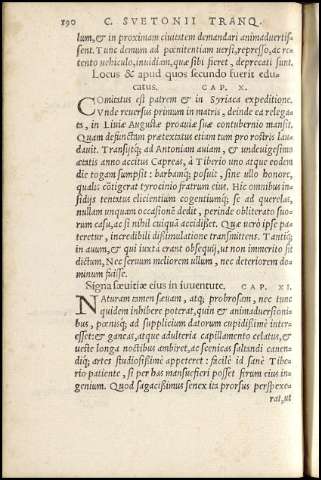 190 C. SVETONII TRANQ.
lum, & in proximam ciuitatem demandari animaduertis-
sent. Tunc demum ad pœnitentiam uersi, represso, ac re-
tento uehiculo, inuidiam, quæ sibi fieret, deprecati sunt.
Locus & apud quos secundo fuerit edu-
catus. CAP. X.
COmitatus est patrem & in Syriaca expeditione.
Vnde reuersus primum in matris, deinde ea relega-
ta, in Liuiæ Augustæ proauiæ suæ contubernio mansit.
Quam defunctam prætextatus etiam tum pro rostris lau-
dauit. Transijtq; ad Antoniam auiam, & undeuigesimo
ætatis anno accitus Capreas, à Tiberio uno atque eodem
die togam sumpsit: barbamq; posuit, sine ullo honore,
qualis cõtigerat tyrocinio fratrum eius. Hic omnibus in-
sidijs tentatus elicientium cogentiumq; se ad querelas,
nullam unquam occasionẽ dedit, perinde obliterato suo-
rum casu, ac si nihil cuiquã accidisset. Quæ uerò ipse pa-
teretur, incredibili dissimulatione transmittens. Tantiq;
in auum, & qui iuxtà erant obsequij, ut non immerito sit
dictum, Nec seruum meliorem ullum, nec deteriorem do-
minum fuisse.
Signa sæuitiæ eius in iuuentute. CAP. XI.
NAturam tamen sæuam, atq; probrosam, nec tunc
quidem inhibere poterat, quin & animaduersioni-
bus, pœnisq; ad supplicium datorum cupidissimè inter-
esset: & ganeas, atque adulteria capillamento celatus, &
ueste longa noctibus ambiret, ac scenicas saltandi canen-
diq; artes studiosissimè appeteret: facilè id sanè Tibe-
rio patiente, si per has mansuefieri posset ferum eius in-
genium. Quod sagacissimus senex ita prorsus perspexe-
rat, ut